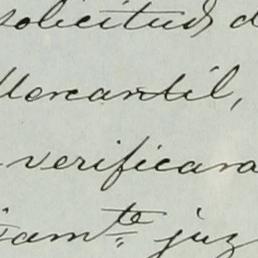 solicitud d
Mercantil,
verificara
iamte juz